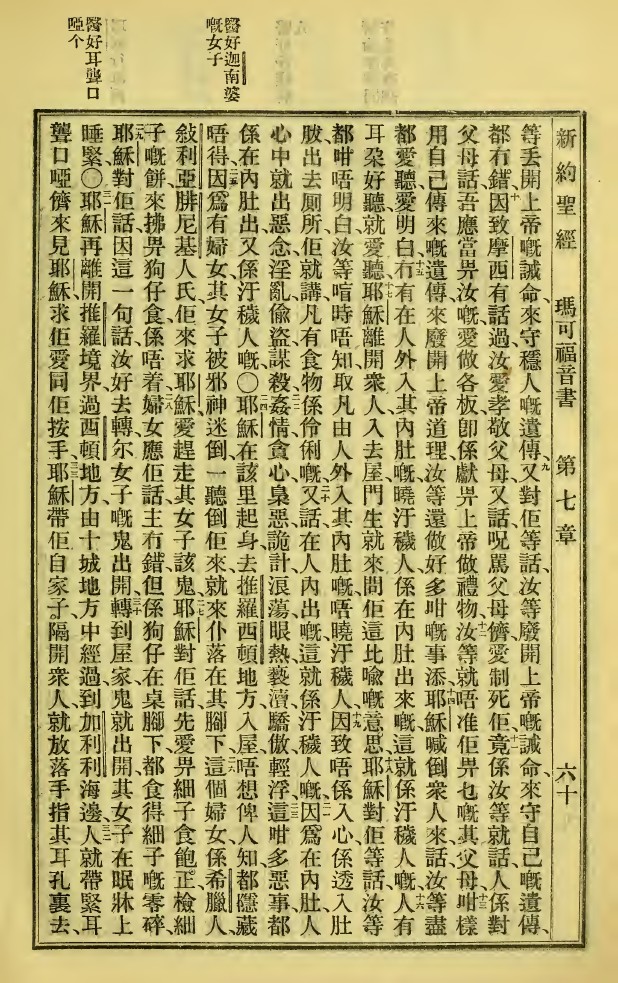 新約聖經 瑪可福音書 第七章 六十
等丟開上帝嘅誡命來守穩人嘅遺傳九又對佢等話汝等廢開上帝嘅誡命來守自己嘅遺傳
都冇錯十因致摩西有話過汝愛孝敬父母又話呪罵父母儕愛制死佢十一竟係汝等就話人係對
父母話吾應當畀汝嘅愛做各板卽係獻畀上帝做禮物十二汝等就唔准佢畀乜嘅其父母十三咁樣
用自己傳來嘅遺傳來廢開上帝道理汝等還做好多咁嘅事添十四耶穌喊倒衆人來話汝等盡
都愛聽愛明白十五冇有在人外入其內肚嘅曉汙穢人係在內肚出來嘅這就係汙穢人嘅十六人有
耳朶好聽就愛聽十七耶穌離開衆人入去屋門生就來問佢這比喻嘅意思十八耶穌對佢等話汝等
都咁唔明白汝等喧時唔知取凡由人外入其內肚嘅唔曉汙穢人十九因致唔係入心係透入肚
肷出去厠所佢就講凡有食物係伶俐嘅二十又話在人內出嘅這就係汙穢人嘅二一因爲在內肚人
心中就出惡念淫亂偷盜謀殺二二姦情貪心梟惡詭計浪蕩眼熱褻瀆驕傲輕浮二三這咁多惡事都
係在內肚出又係汙穢人嘅〇二四耶穌在該里起身去推羅西頓地方入屋唔想俾人知都隱藏
唔得二五因爲有婦女其女子被邪神迷倒一聽倒佢來就來仆落在其腳下二六這個婦女係希臘人
敍利亞腓尼基人氏佢來求耶穌愛趕走其女子該鬼二七耶穌對佢話先愛畀細子食飽正檢細
子嘅餅來拂畀狗仔食係唔着二八婦女應佢話主冇錯但係狗仔在桌腳下都食得細子嘅零碎
二九耶穌對佢話因這一句話汝好去轉尓女子嘅鬼出開三十轉到屋家鬼就出開其女子在眠牀上
睡緊〇三一耶穌再離開推羅境界過西頓地方由十城地方中經過到加利利海邊三二人就帶緊耳
聾口啞儕來見耶穌求佢愛同佢按手三三耶穌帶佢自家子隔開衆人就放落手指其耳孔裏去
醫好迦南婆
嘅女子
醫好耳聾口
啞个